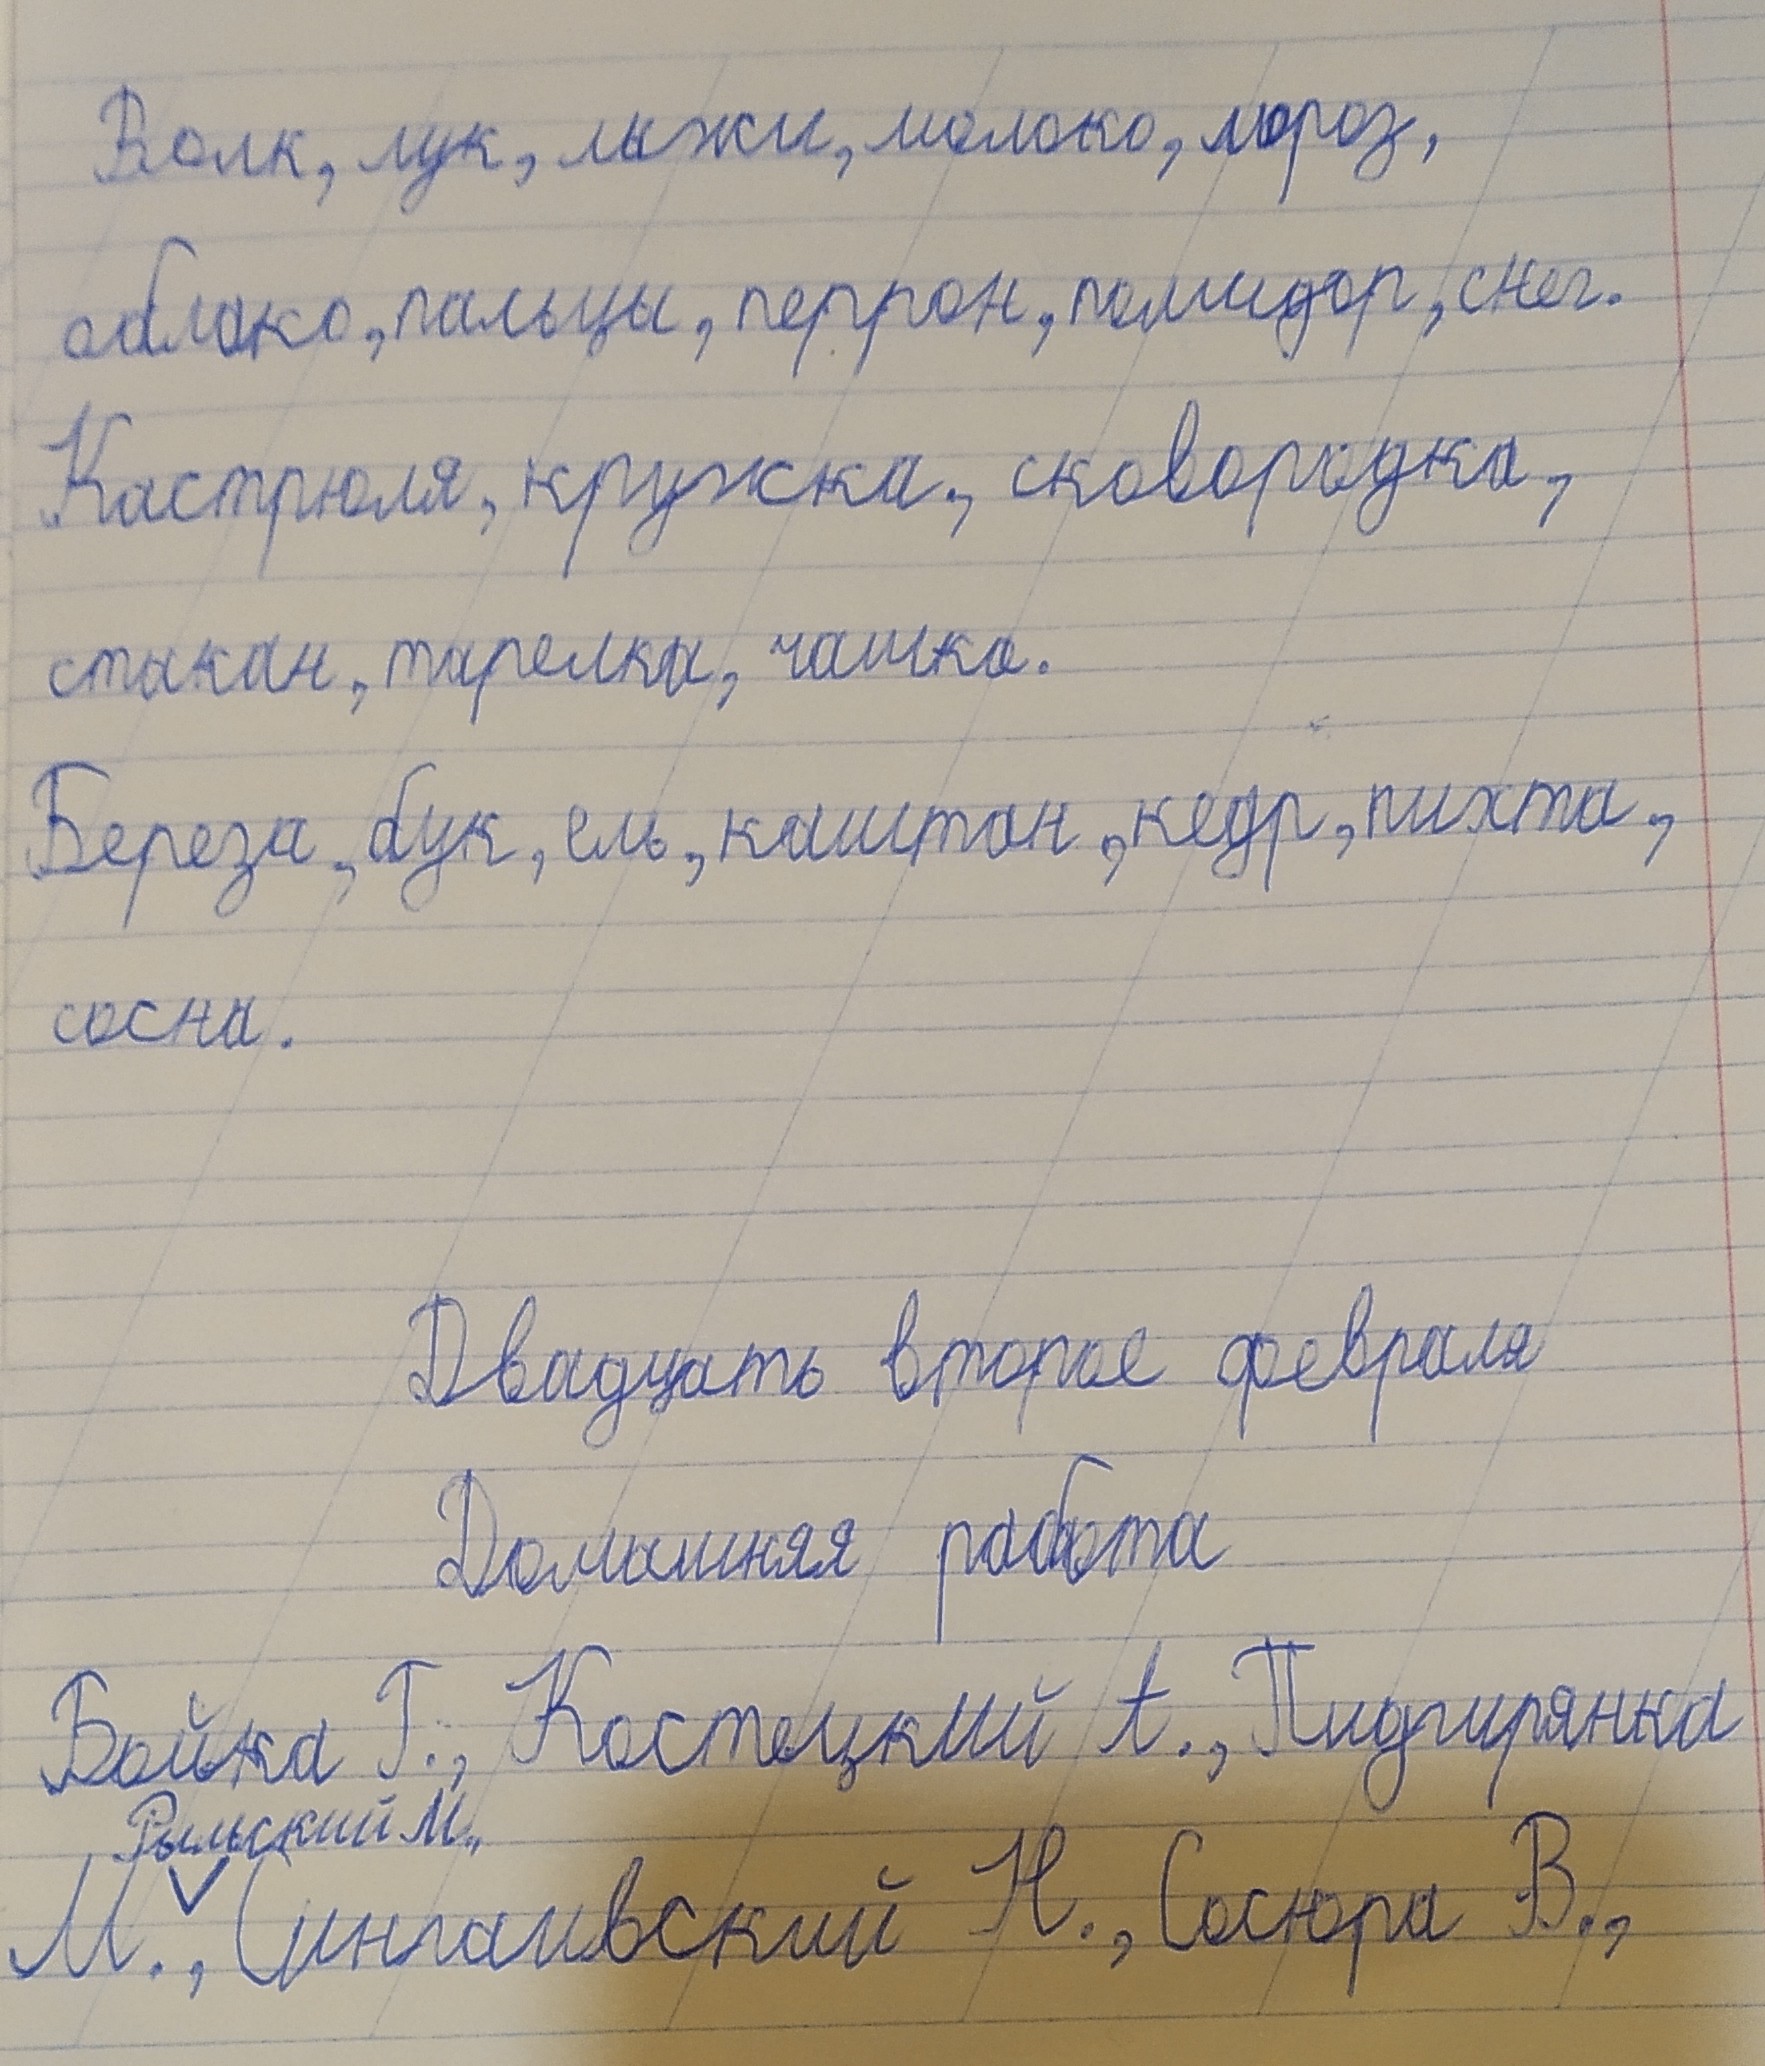 Волк, лук, лыжи, молоко, мороз,
облако, пальцы, перрон, помидор, снег.
Кастрюля, кружка, сковородка,
стакан, тарелка, чашка.
Береза, бук, ель, каштан, кедр, пихта,
сосна.
Двадцать второе февраля
Домашняя работа
Бойка Г., Костецкий А., Пидгирянка
Рыльский М.,
М., Сингаивский Н., Сосюра В.,